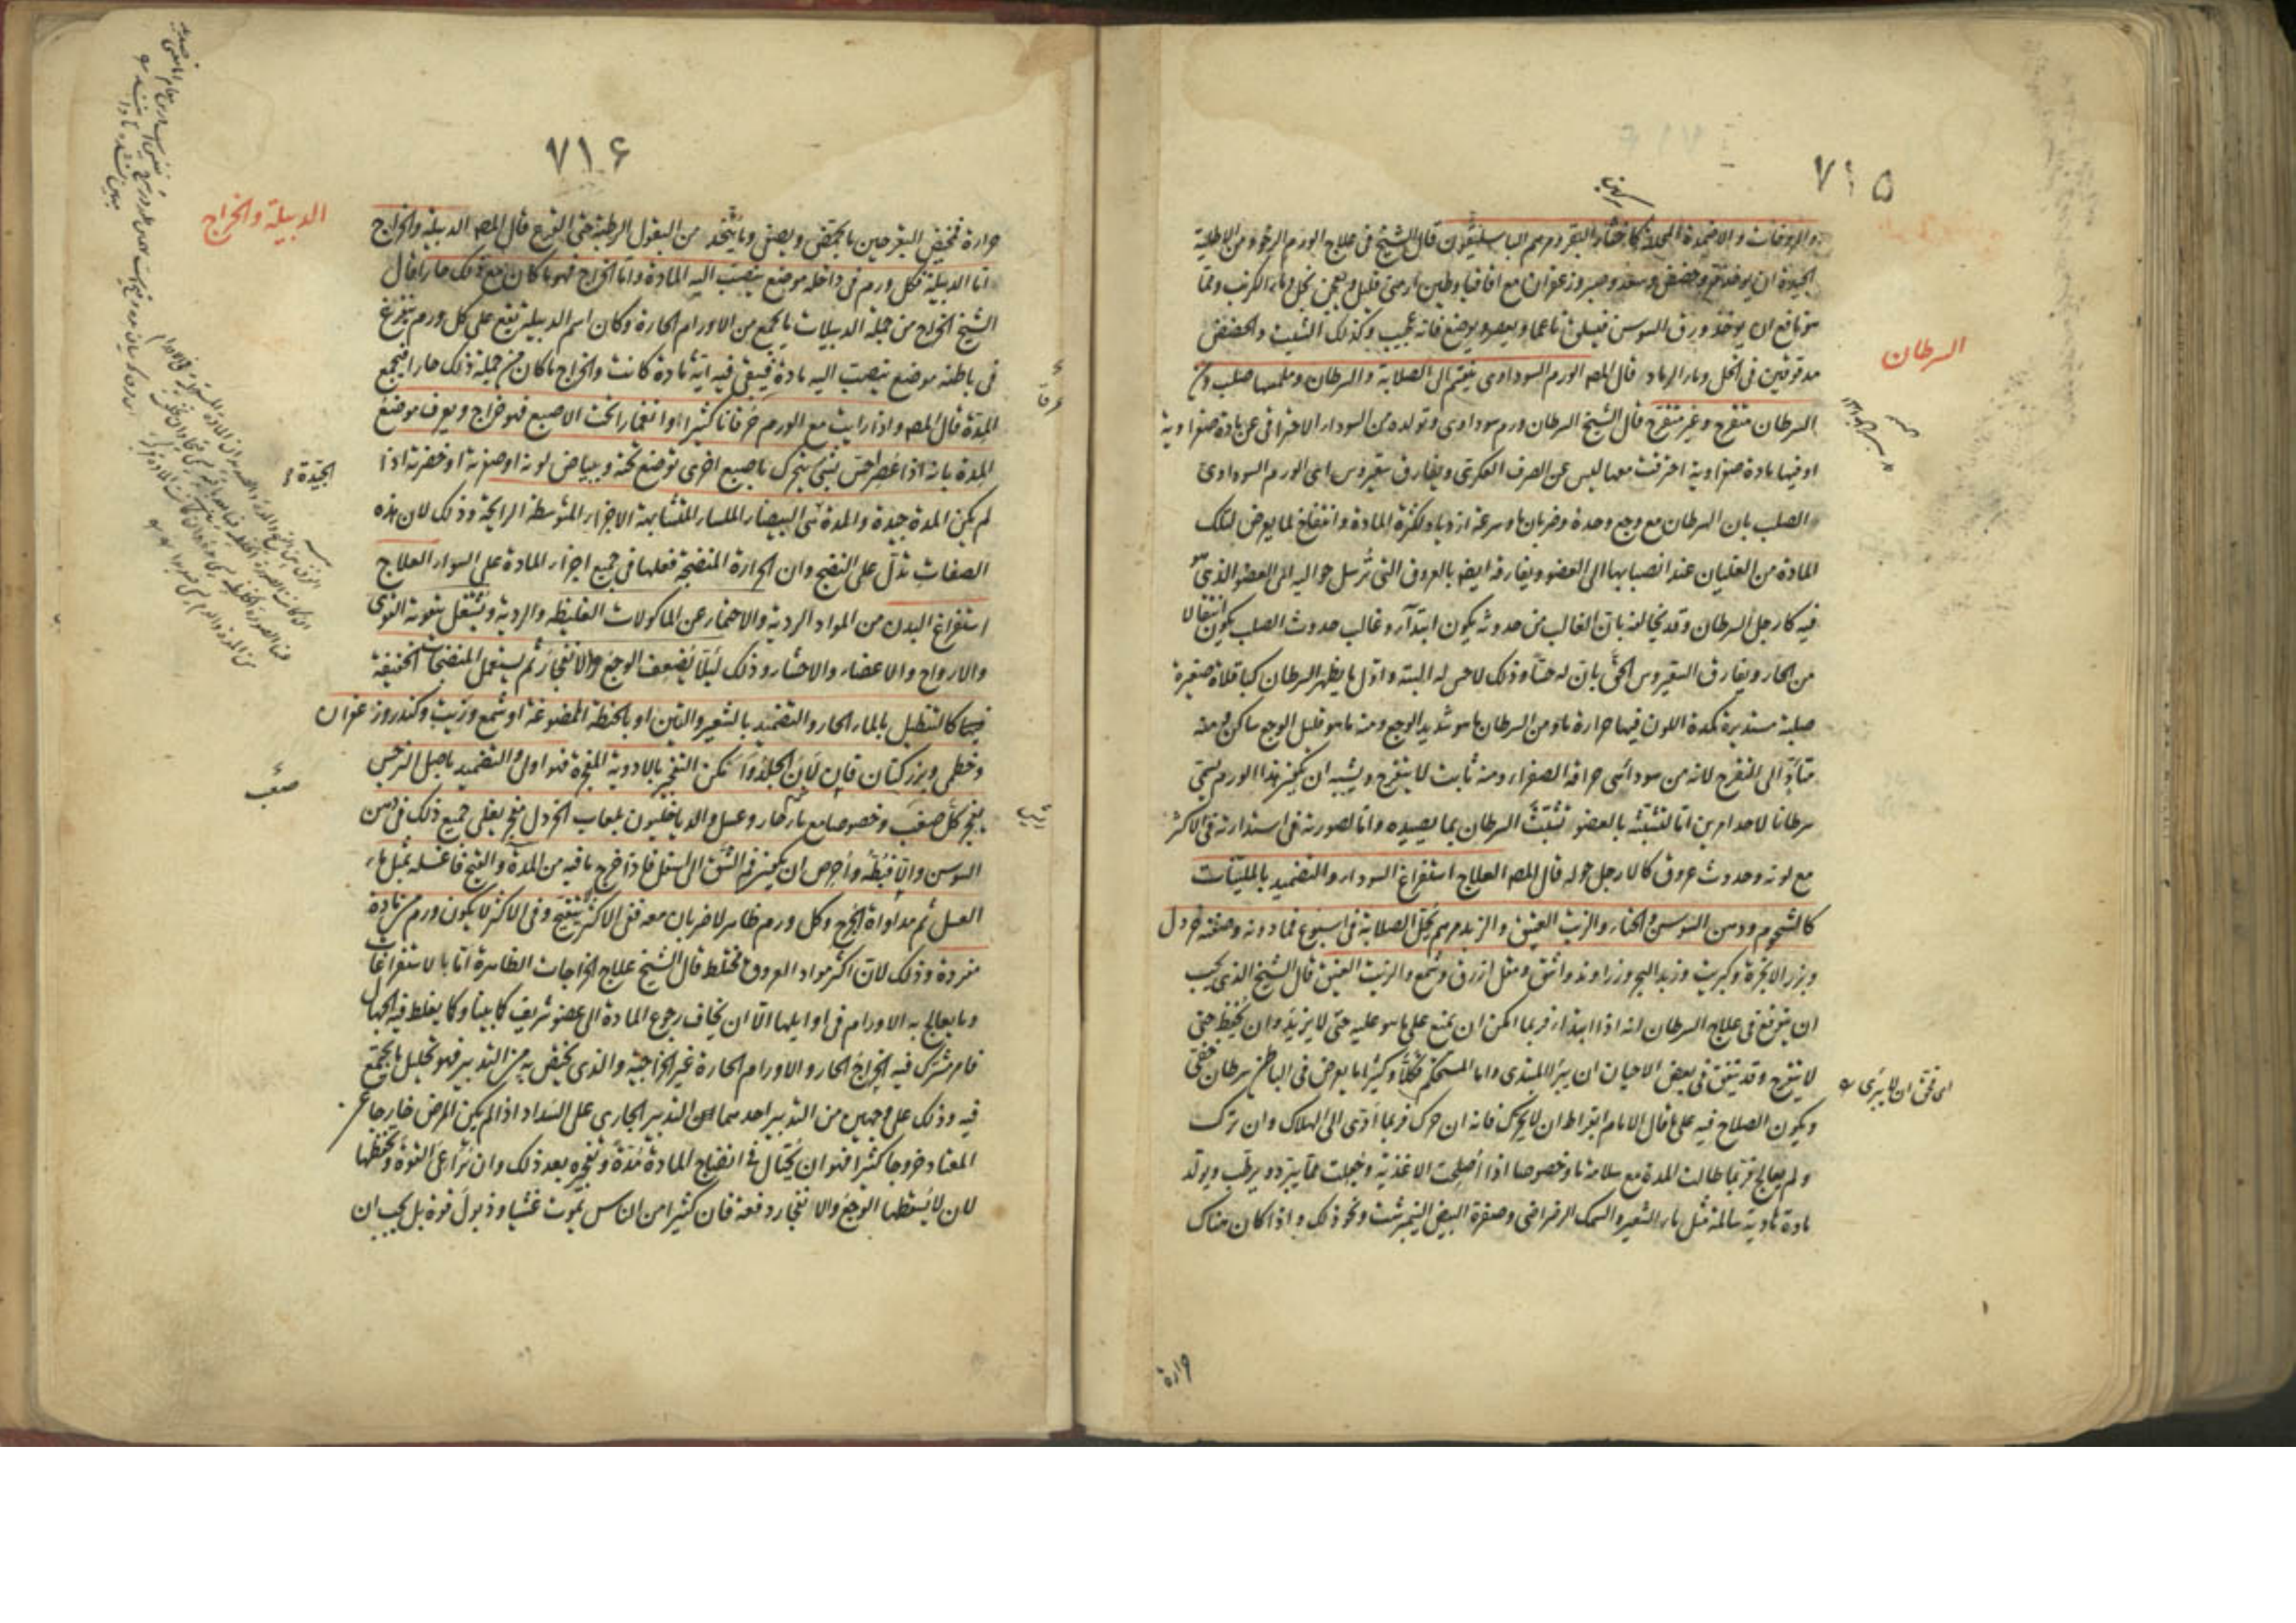 ٧١٥
والمروخات والاضمدة المحللة كاخثاء البقر ومرهم الباسليقون قال الشيخ فى علاج الورم الرخو ومن الاطلية
الجيدة ان يوخذ وحضض وسعد وصبر وزعفران مع اقاقيا وطين ارمنى قليل ويعجن بخل وماء الكرنب ومما
هو نافع ان يوخذ ورق السوسن فيسلق ناعما ويعصر ويوضع فانه عجيب وكذلك الشبت والحضض
مدقوقين فى الخل وماء الرماد قال المصـ الورم السوداوى ينقسم الى الصلابة والسرطان وملمسها صلب
السرطان
السرطان متقرح وغير متقرح قال الشيخ السرطان ورم سوداوى وتولده من السوداء الاحتراقى عن مادة صفراوية
او فيها مادة صفراوية احترقت معها ليس عن الصرف العكرى ويفارق سقيروس اعنى الورم السوداوى
الصلب بان السرطان مع وجع وحدة وضربان ما وسرعة ازدياد لكثرة المادة وانتفاخ لما يعرض لتلك
المادة من الغليان عند انصبابها الى العضو ويفارقه ايضا بالعروق التى ترسل حواليه الى العضو الذى هو
فيه كارجل السرطان وقد يخالفه بان الغالب من حدوثه يكون ابتداء وغالب حدوث الصلب يكون انتقالا
من الحار ويفارق السقيروس الحق بان له حسا وذلك لا حس له البتة واول ما يظهر السرطان كباقلاة صغيرة
صلبة مستديرة كمدة اللون فيها حرارة ما ومن السرطان ما هو شديد الوجع ومنه ما هو قليل الوجع ساكن ومنه
متأد الى التقرح لانه من سوداء هى حراقة الصفراء ومنه ثابت لا يتقرح ويشبه ان يكون هذا الورم يسمى
سرطانا لاحد امرين اما لتشبثه بالعضو تشبث السرطان بما يصيده واما لصورته فى استدارته فى الاكثر
مع لونه وحدوث عروق كالارجل حوله قال المصـ العلاج استفراغ السوداء والتضميد بالملينات
كالشحوم ودهن السوسن والحناء والزيت العتيق والزبد مرهم يحلل الصلابة فى اسبوع فما دونه وصفته خردل
وبزر الانجرة وكبريت وزبد البحر وزراوند واشق ومقل ازرق وشمع والزيت العتيق قال الشيخ الذى يجب
ان يتوقع فى علاج السرطان انه اذا ابتداء فربما امكن ان يمنع على ما هو عليه حتى لا يزيد وان يحفظ حتى
لا يتقرح وقد يتفق فى بعض الاحيان ان يبرأ المبتدى واما المستحكم فكلا وكثيرا ما يعرض فى الباطن سرطان خفى
ويكون الصلاح فيه على ما قال الامام ابقراط ان لا يحرك فانه ان حرك فربما ادى الى الهلاك وان ترك
ولم يعالج فربما طالت المدة مع سلامة ما وخصوصا اذا اصلحت الاغذية وجعلت مما يبرد ويرطب ويولد
مادة هادية سالمة مثل ماء الشعير والسمك الرضراضى وصفرة البيض النيمبرشت ونحو ذلك واذا كان هناك
حرارة
٧١٦
الدبيلة والخراج
حرارة فمخيض البقر حين ما يمخض ويصفى وما يتخذ من البقول الرطبة حتى القرع قال المصـ الدبيلة والخراج
اما الدبيلة فكل ورم فى داخله موضع ينصب اليه المادة واما الخراج فهو ما كان مع ذلك حارا قال
الشيخ الخراج من جملة الدبيلات ما يجمع من الاورام الحارة وكان اسم الدبيلة تقع على كل ورم يتفرغ
فى باطنه موضع تنصب اليه مادة فيبقى فيه اية مادة كانت والخراج ما كان من جملة ذلك حارا فيجمع
المدة قال المصـ واذا رايت مع الورم ضربانا كثيرا وانغمارا تحت الاصبع فهو خراج ويعرف موضع
المدة بانه اذا عصر احس بشىء يتحرك باصبع اخرى توضع تحته وبياض لونه او صفرته او خضرته اذا
لم يكن المدة جيدة والمدة هى البيضاء الملساء المتشابهة الاجزاء المتوسطة الرايحة وذلك لان هذه
الجيدة
الصفات تدل على النضج وان الحرارة المنضجة فعلها فى جميع اجزاء المادة على السواء العلاج
استفراغ البدن من المواد الردية والاحتماء عن الماكولات الغليظة والردية ويشتغل بتقوية القوى
والارواح والاعضاء والاحشاء وذلك ليلا يضعف الوجع والانفجار ثم يستعمل المنضجات الخفيفة
كالتنطيل بالماء الحار والتضميد بالشعير والتين او بالحنطة الممضوغة او شمع وزيت وكندر وزعفران
وخطمى وبزر كتان فان لان الجلد وامكن التفجر بالادوية المفجرة فهو اولى والتضميد باصل النرجس
يفجر كل صعب وخصوصا مع ماء حار وعسل والدياخليون بلعاب الخردل مفجر يغلى جميع ذلك فى دهن
صعب
السوسن والا فبطه واحرص ان يكون فم الشق الى اسفل فاذا خرج ما فيه من المدة والقيح فاغسله بمثل ماء
العسل ثم مداواة الجرح وكل ورم ظاهر لا ضربان معه ففى الاكثر لا يتقيح وفى الاكثر لا يكون ورم من مادة
مفردة وذلك لان اكثر مواد العروق مختلط قال الشيخ علاج الخراجات الظاهرة اما بالاستفراغات
وما يعالج به الاورام فى اوايلها الا ان يخاف رجوع المادة الى عضو شريف كما بينا وكما يغلط فيه الجهال
فامر مشترك فيه الخراج الحار والاورام الحارة غير الخراجية والذى يختص به من التدبير فهو تحليل ما يجتمع
فيه وذلك على وجهين من التدبير احدهما التدبير الجارى على السداد اذا لم يكن المرض خارجا عن
المعتاد خروجا كثيرا فهو ان يحتال فى انضاج المادة مدة وتفجيره بعد ذلك وان تراعى القوة وتحفظها
لان لا يسقطها الوجع والانفجار دفعة فان كثيرا من الناس يموت غشيا وذبول قوة بل يجب ان